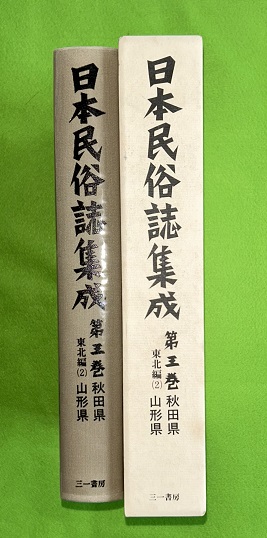 日本民俗誌集成
第三巻
東北編(2)
秋田県
山形県
三一書房
日本民俗誌集成
第三巻
東北編(2)
秋田県
山形県
三一書房